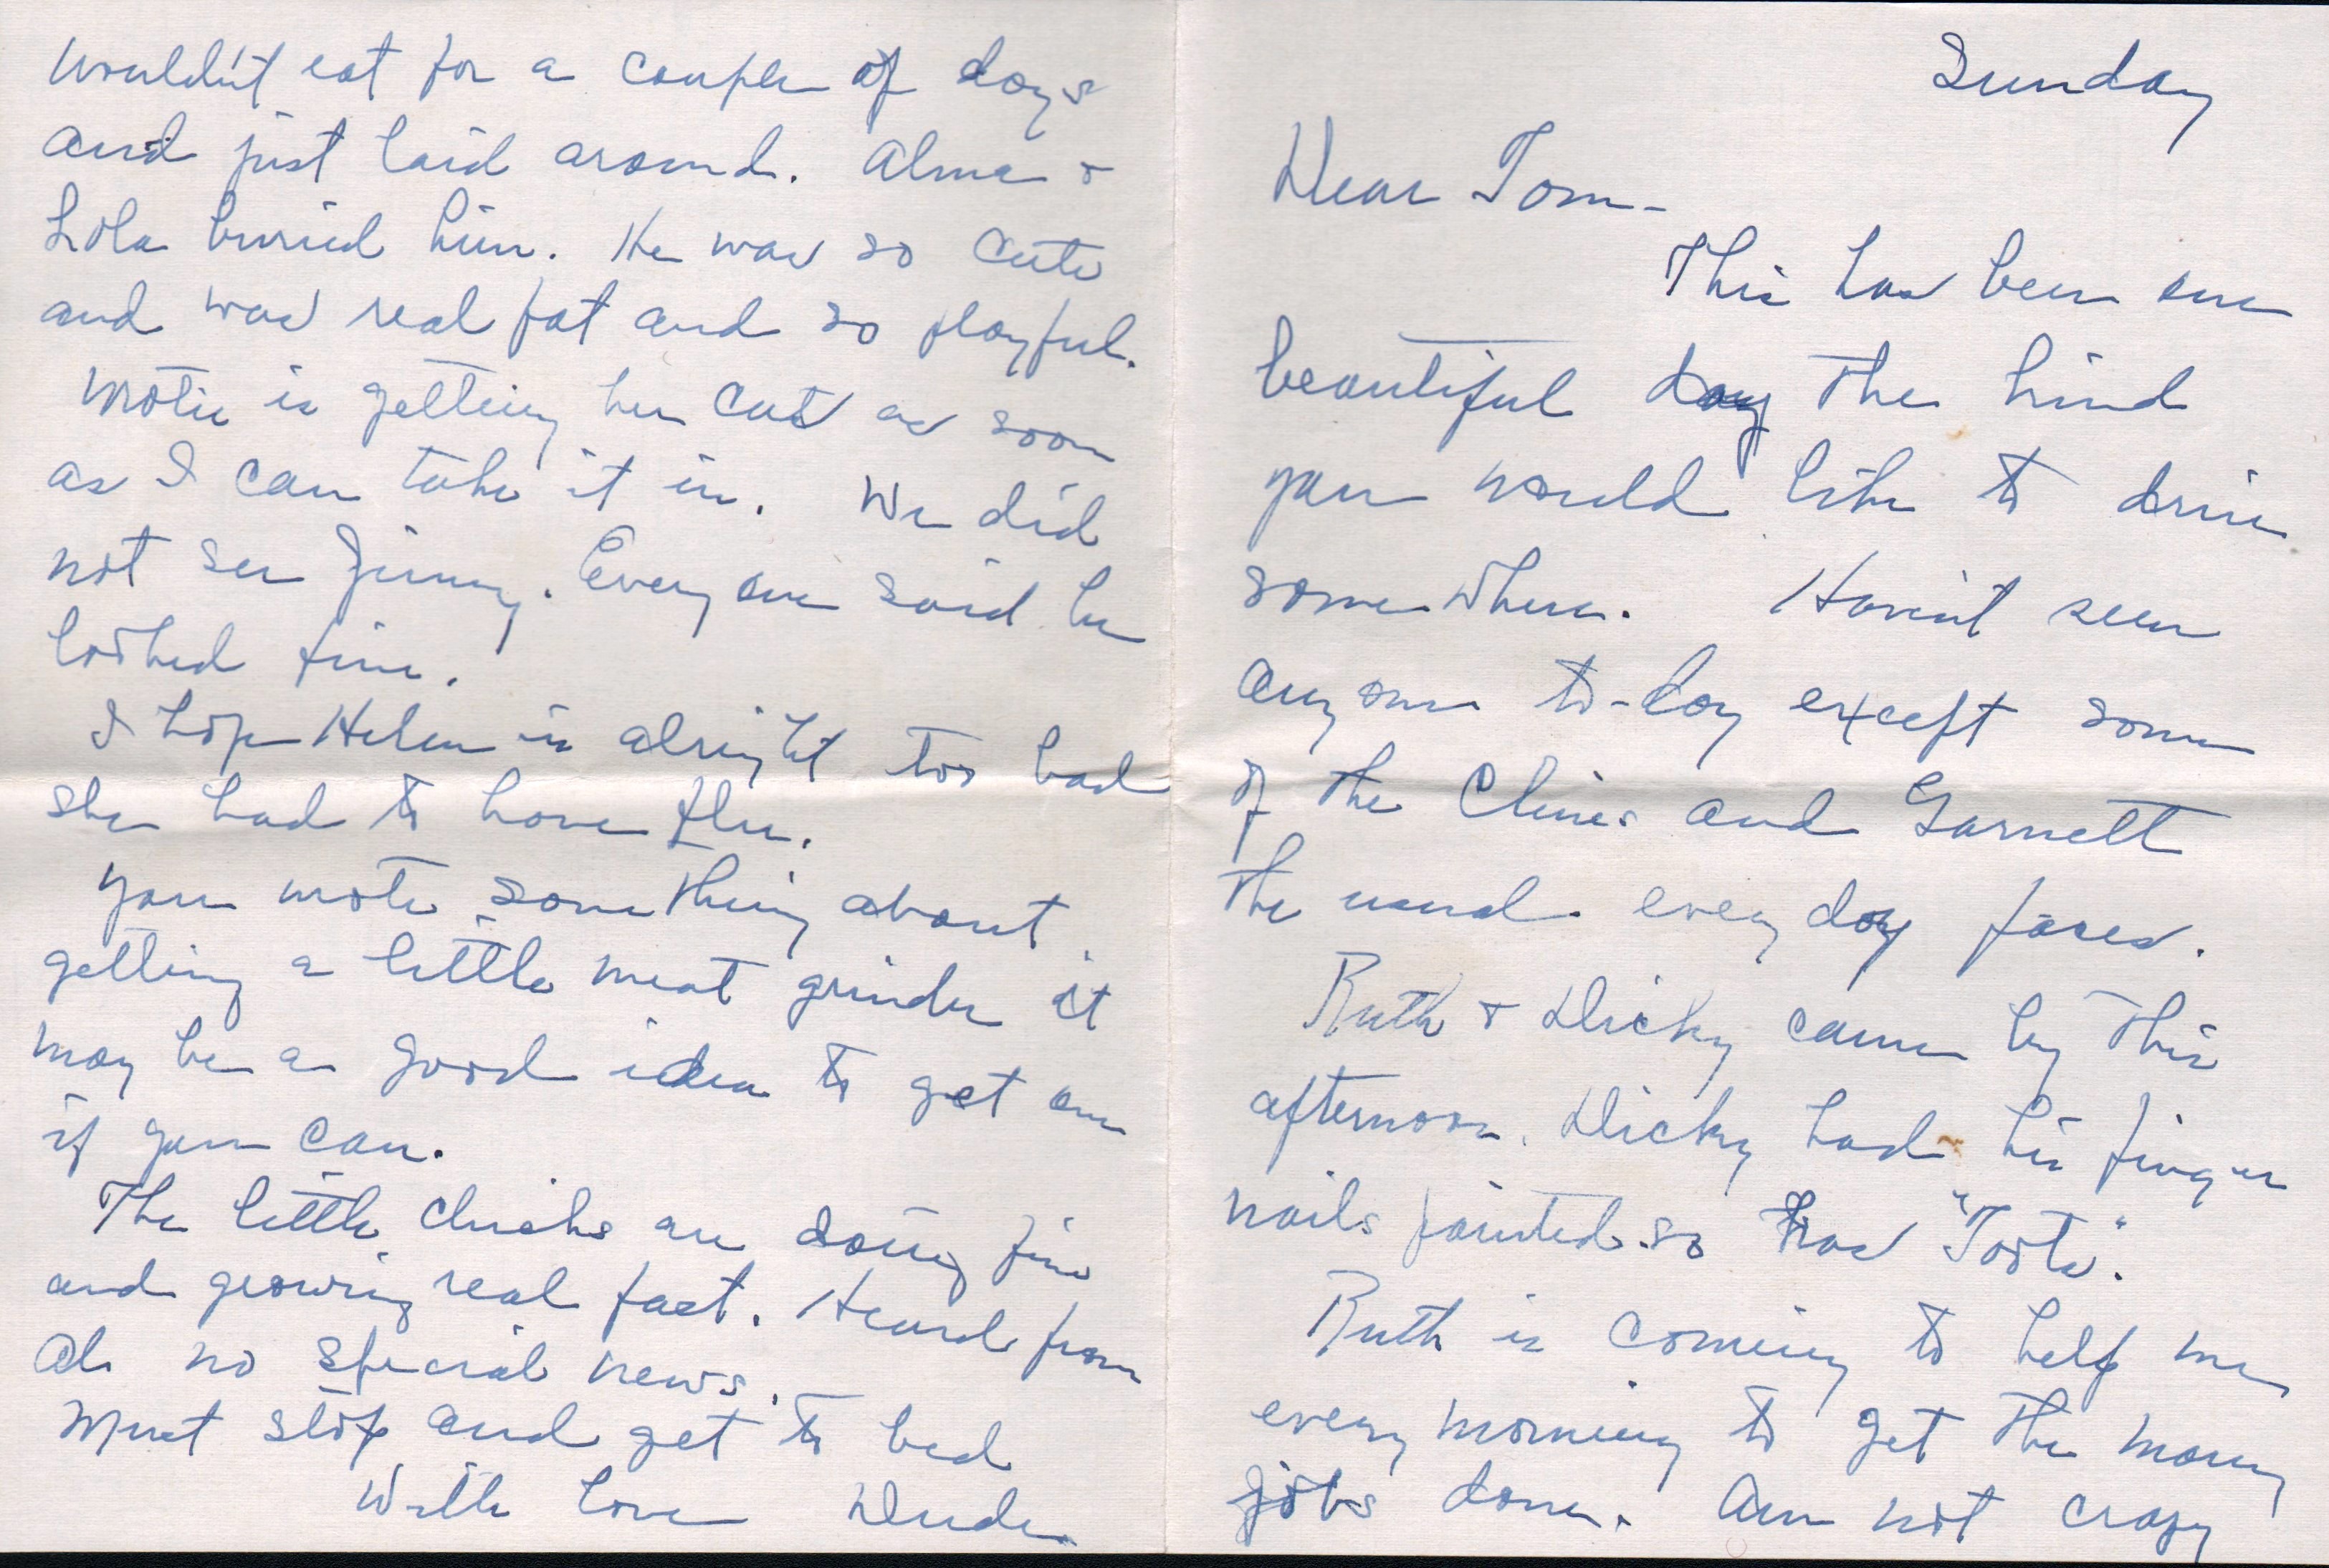 Sunday
Dear Tom-
This has been one
beautiful day the kind
you would like to drive
somewhere. Havent seen
anyone to-day except some
of the Clines and Garnett
the usual every day faces.
Ruth & Dicky came by this
afternoon. Dicky had his finger
nails painted so has "Toots".
Ruth is coming to help me
every morning to get the many
jobs done. Am not crazy
wouldn't eat for a couple of days
and just laid around. Alma &
Lola buried him. He was so cute
and was real fat and so playful.
is getting her cat as soon
as I can take it in. We did
not see Jimmy. Every one said he
looked fine.
I hope Helen is alright too bad
she had to have flu.
You wrote something about
getting a little meat grinder it
may be a good idea to get one
if you can.
The little chicks are doing fine
and growing real fast. Heard from
Al no special news.
Must stop and get to bed
With love Dude